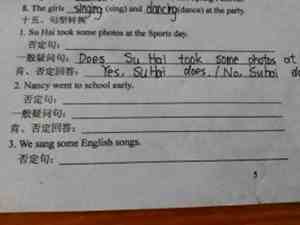 8. The girls singing (sing) and dancing (dance) at the party.
十五、句型转换
1. Su Hai took some photos at the Sports day.
否定句:
一般疑问句: Does Su Hai took some photos at
肯、否定回答: Yes, Su Hai does. / No, Su hai
2. Nancy went to school early.
否定句:
一般疑问句:
肯、否定回答:
3. We sang some English songs.
否定句:
5